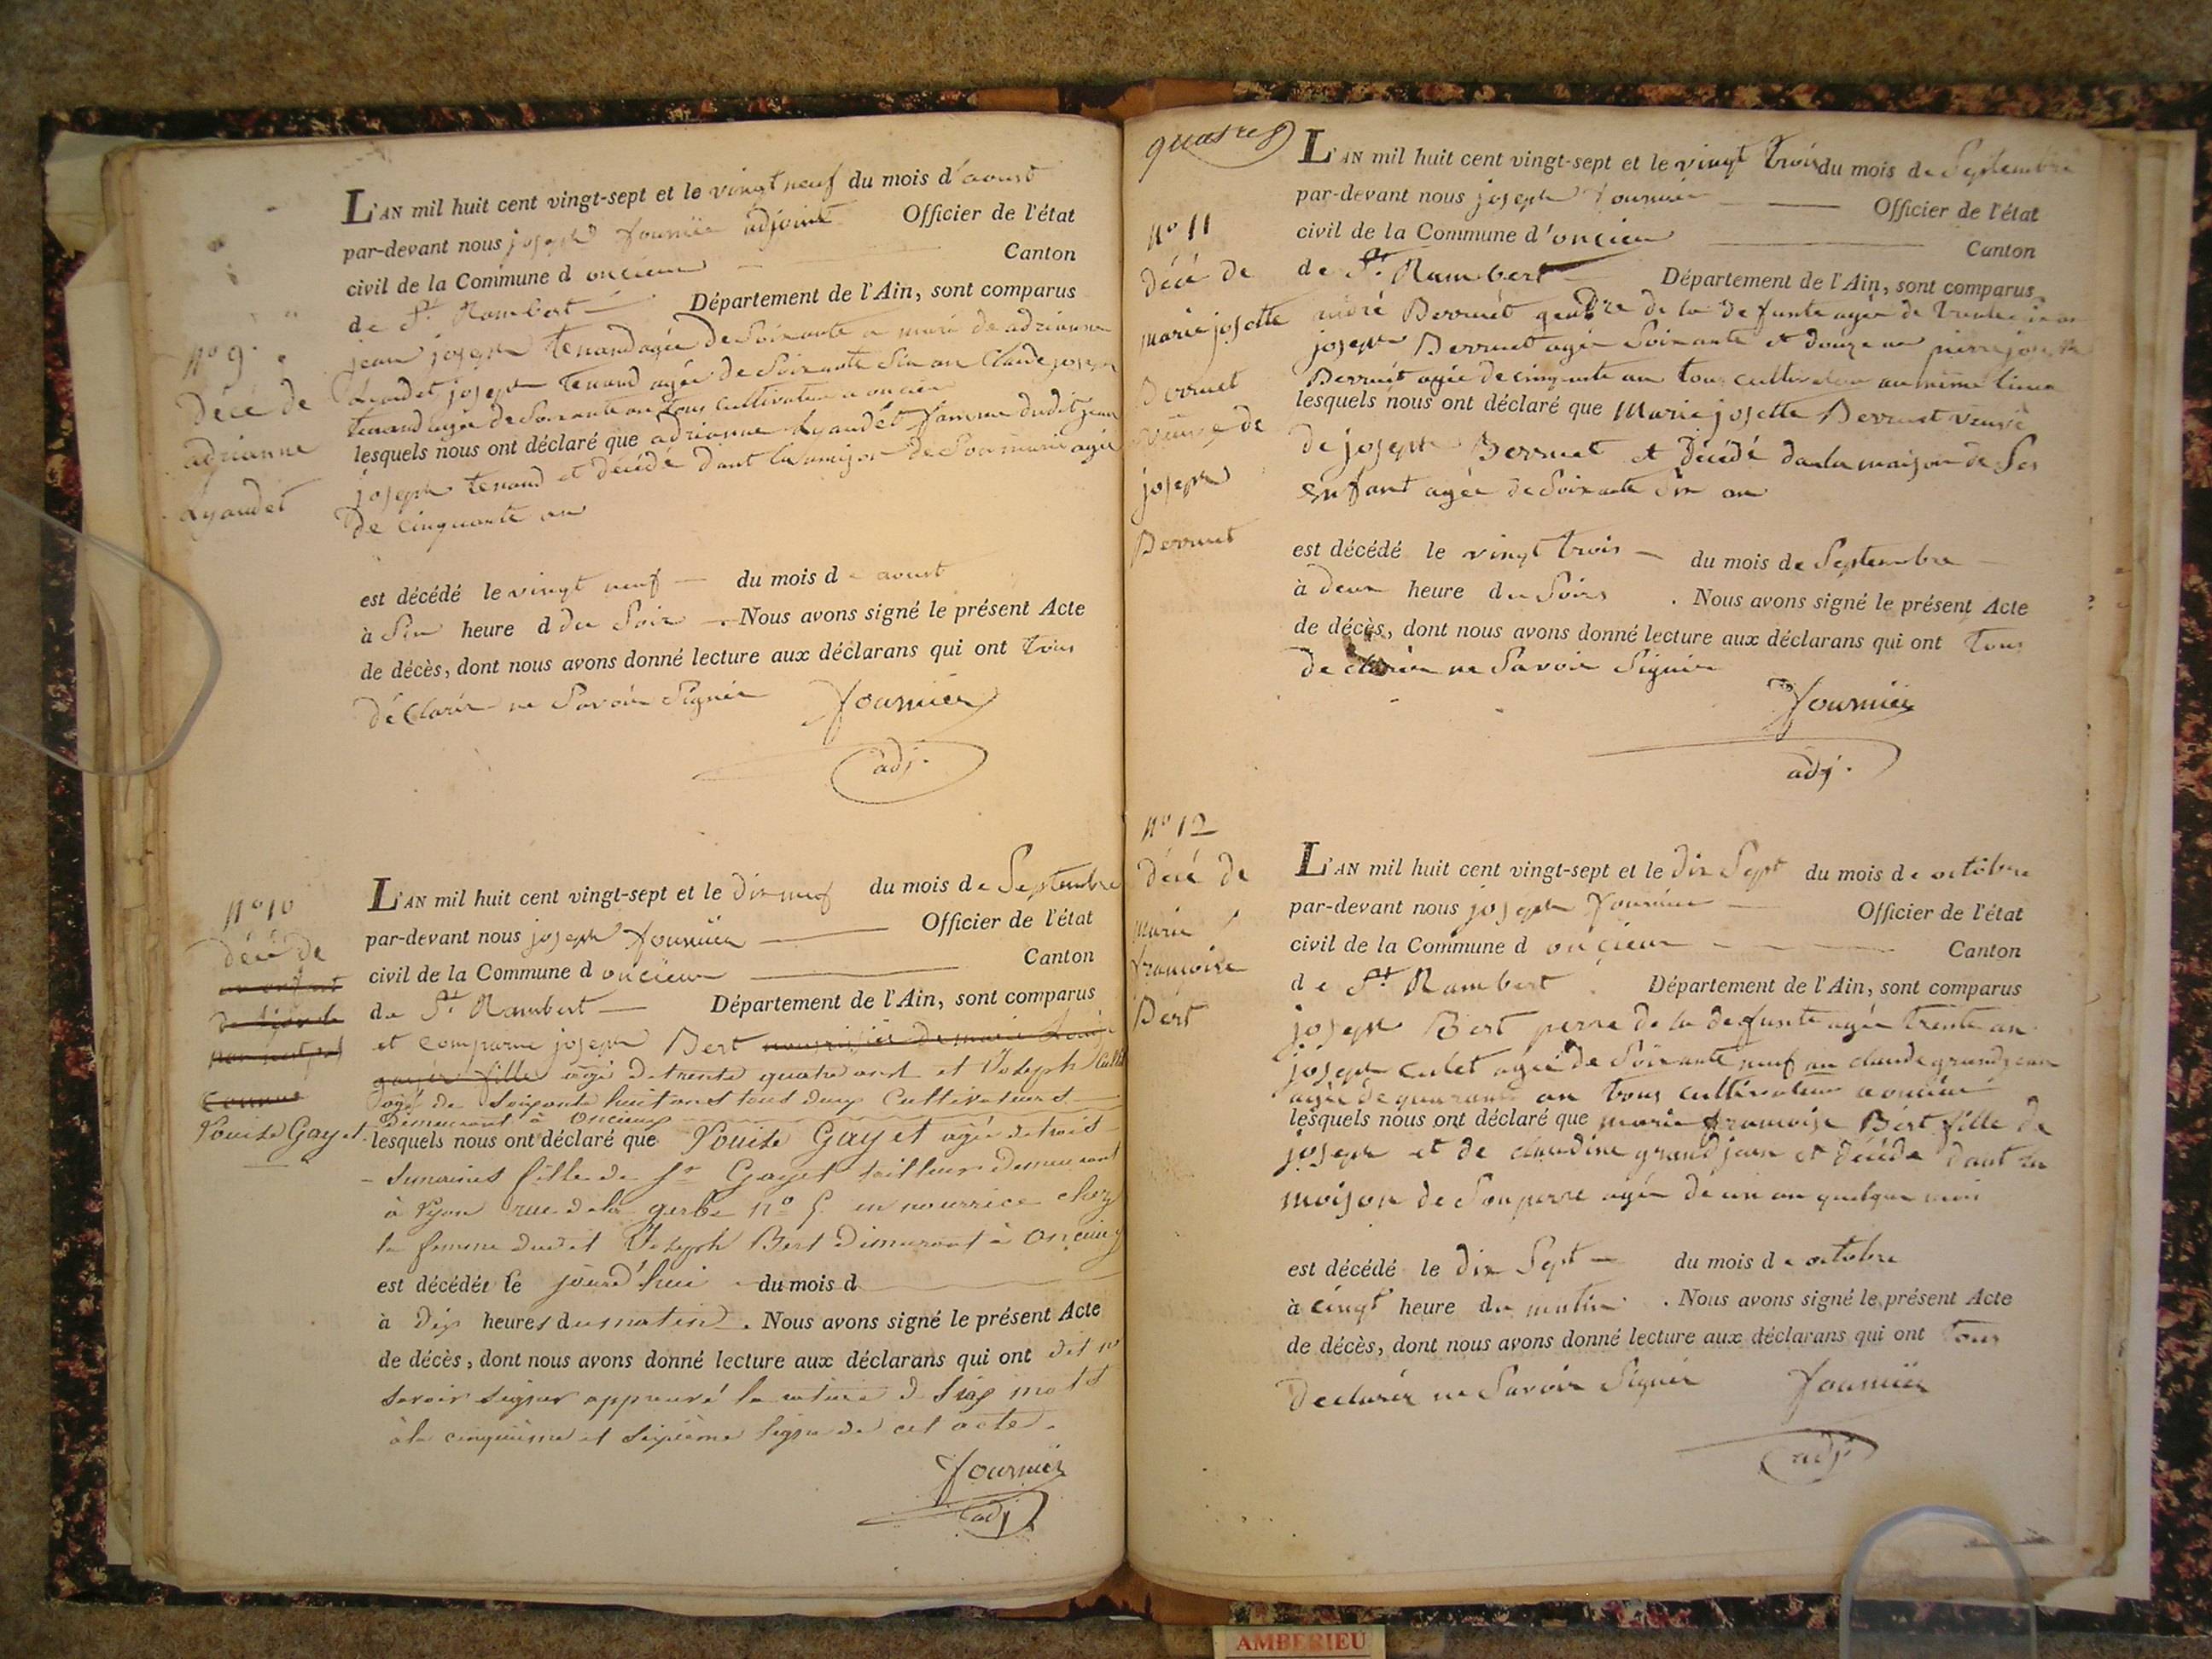 L'AN mil huit cent vingt-sept et le vingt neuf du mois d'aoust
par-devant nous joseph fournier adjoint Officier de l'état
civil de la Commune d oncieu Canton
de St Rambert Département de l'Ain, sont comparus
n° 9
décé de
adrianne
Lyaudet
jean joseph tenand agée de Soixante a mari de adrianne
Lyaudet joseph tenand agée de Soixante an Claude joseph
tenand agée de Soixante an tous cultivateur a oncieu
lesquels nous ont déclaré que adrianne Lyaudet famme dudit jean
joseph tenand et décédé dant la maison de Son mari agée
de cinquante an
est décédé le vingt neuf du mois de aoust
à Six heure d du Soir Nous avons signé le présent Acte
de décès, dont nous avons donné lecture aux déclarans qui ont tous
déClarér ne Savoir Signér fournier
adj.
n° 10
décé de
Louise Gayet
L'AN mil huit cent vingt-sept et le dix neuf du mois de Septembre
par-devant nous joseph fournier Officier de l'état
civil de la Commune d oncieu Canton
de St Rambert Département de l'Ain, sont comparus
et comparue joseph Bert
gayér fille agé de trente quatre ans et Joseph Cullet
agé de Soixante huit ans tous deux Cultivateurs
Demeurant à Oncieux
lesquels nous ont déclaré que Louise Gayet agée de trois
Semaines fille de Sr Gayet tailleur demeurant
à Lyon rue de la gerbe n° 5 en nourrice chez
la femme dudit Joseph Bert demeurant à Oncieux
est décédée le jourd'hui du mois d
à dix heures du matin. Nous avons signé le présent Acte
de décès, dont nous avons donné lecture aux déclarans qui ont dit ne
savoir signer approuvé la rature de Six mots
à la cinquième et Sixième ligne de cet acte.
fournier
adj
quatre
n° 11
décé de
marie josette
Berruet
veuve de
joseph
Berruet
L'AN mil huit cent vingt-sept et le vingt trois du mois de Septembre
par-devant nous joseph fournier Officier de l'état
civil de la Commune d'oncieu Canton
de St Rambert Département de l'Ain, sont comparus
andré Berruét gendre de la defunte agée de trente
joseph Berruet agée Soixante et douze an pierre joseph
Berruét agée de cinquante an tous cultivateur au même lieu
lesquels nous ont déclaré que Marie josette Berruet veuve
de joseph Berruet et décédé dan la maison de Ses
enfant agée de Soixante dix an
est décédé le vingt trois du mois de Septembre
à deux heure du Soirs . Nous avons signé le présent Acte
de décès, dont nous avons donné lecture aux déclarans qui ont tous
declarér ne Savoir Signér
fournier
adj.
n° 12
décé de
marie
françoise
Bert
L'AN mil huit cent vingt-sept et le dix Sept du mois de octobre
par-devant nous joseph fournier Officier de l'état
civil de la Commune d oncieu Canton
de St Rambert . Département de l'Ain, sont comparus
joseph Bert perre de la defunte agée trente an
joseph culet agée de Soixante neuf an claude grandjean
agée de quarante an tous cultivateur a oncieu
lesquels nous ont déclaré que marie francoise Bert fille de
joseph et de claudine grandjean et décédé dant la
maison de Son perre agée de un an quelque mois
est décédé le dix Sept du mois de octobre
à cinqt heure du matin . Nous avons signé le présent Acte
de décès, dont nous avons donné lecture aux déclarans qui ont tous
declarér ne Savoir Signér fournier
adj
AMBERIEU